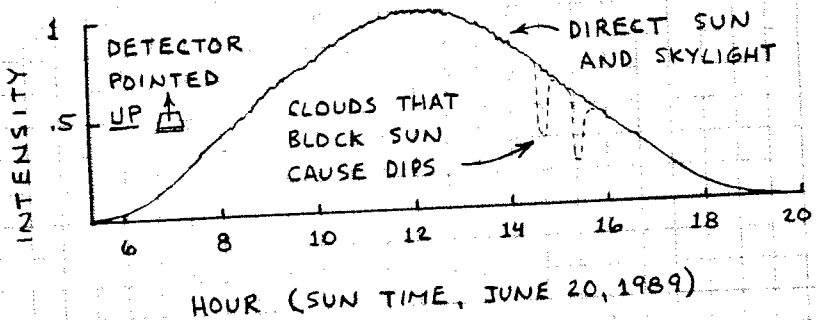 1
DETECTOR
POINTED
UP
.5
INTENSITY
DIRECT SUN
AND SKYLIGHT
CLOUDS THAT
BLOCK SUN
CAUSE DIPS
6 8 10 12 14 16 18 20
HOUR (SUN TIME, JUNE 20, 1989)